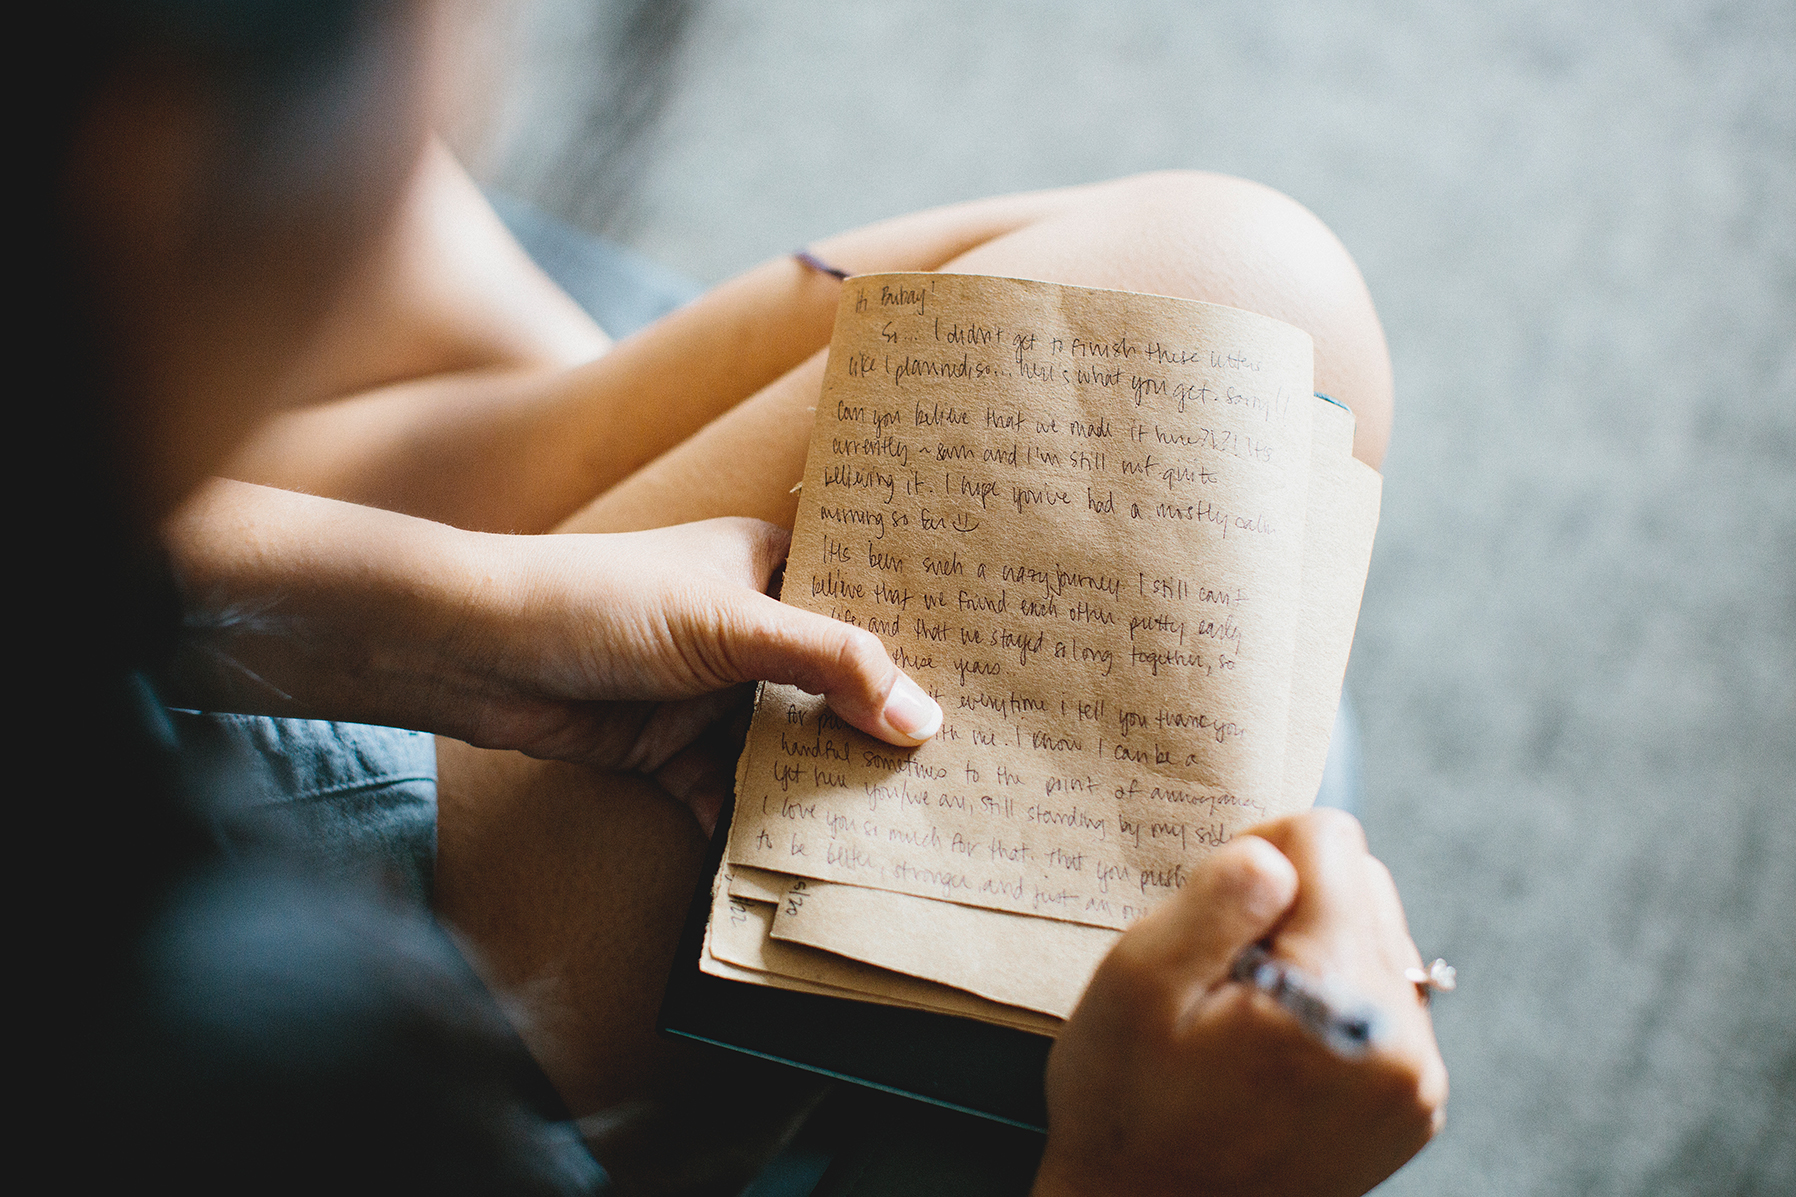 Hi Bubay!
So... I didn't get to finish these letters
like I planned, so... here's what you get. Sorry!!
Can you believe that we made it here?!?! It's
currently ~8am and I'm still not quite
believing it. I hope you've had a mostly calm
morning so far
It's been such a crazy journey. I still can't
believe that we found each other pretty early
life, and that we stayed so long together, so
these years..
it everytime i tell you thank you
for with me. I know I can be a
handful sometimes to the point of annoyance,
yet here you/we are, still standing by my side
I love you so much for that. That you push
to be better, stronger, and just an
/22
5/20